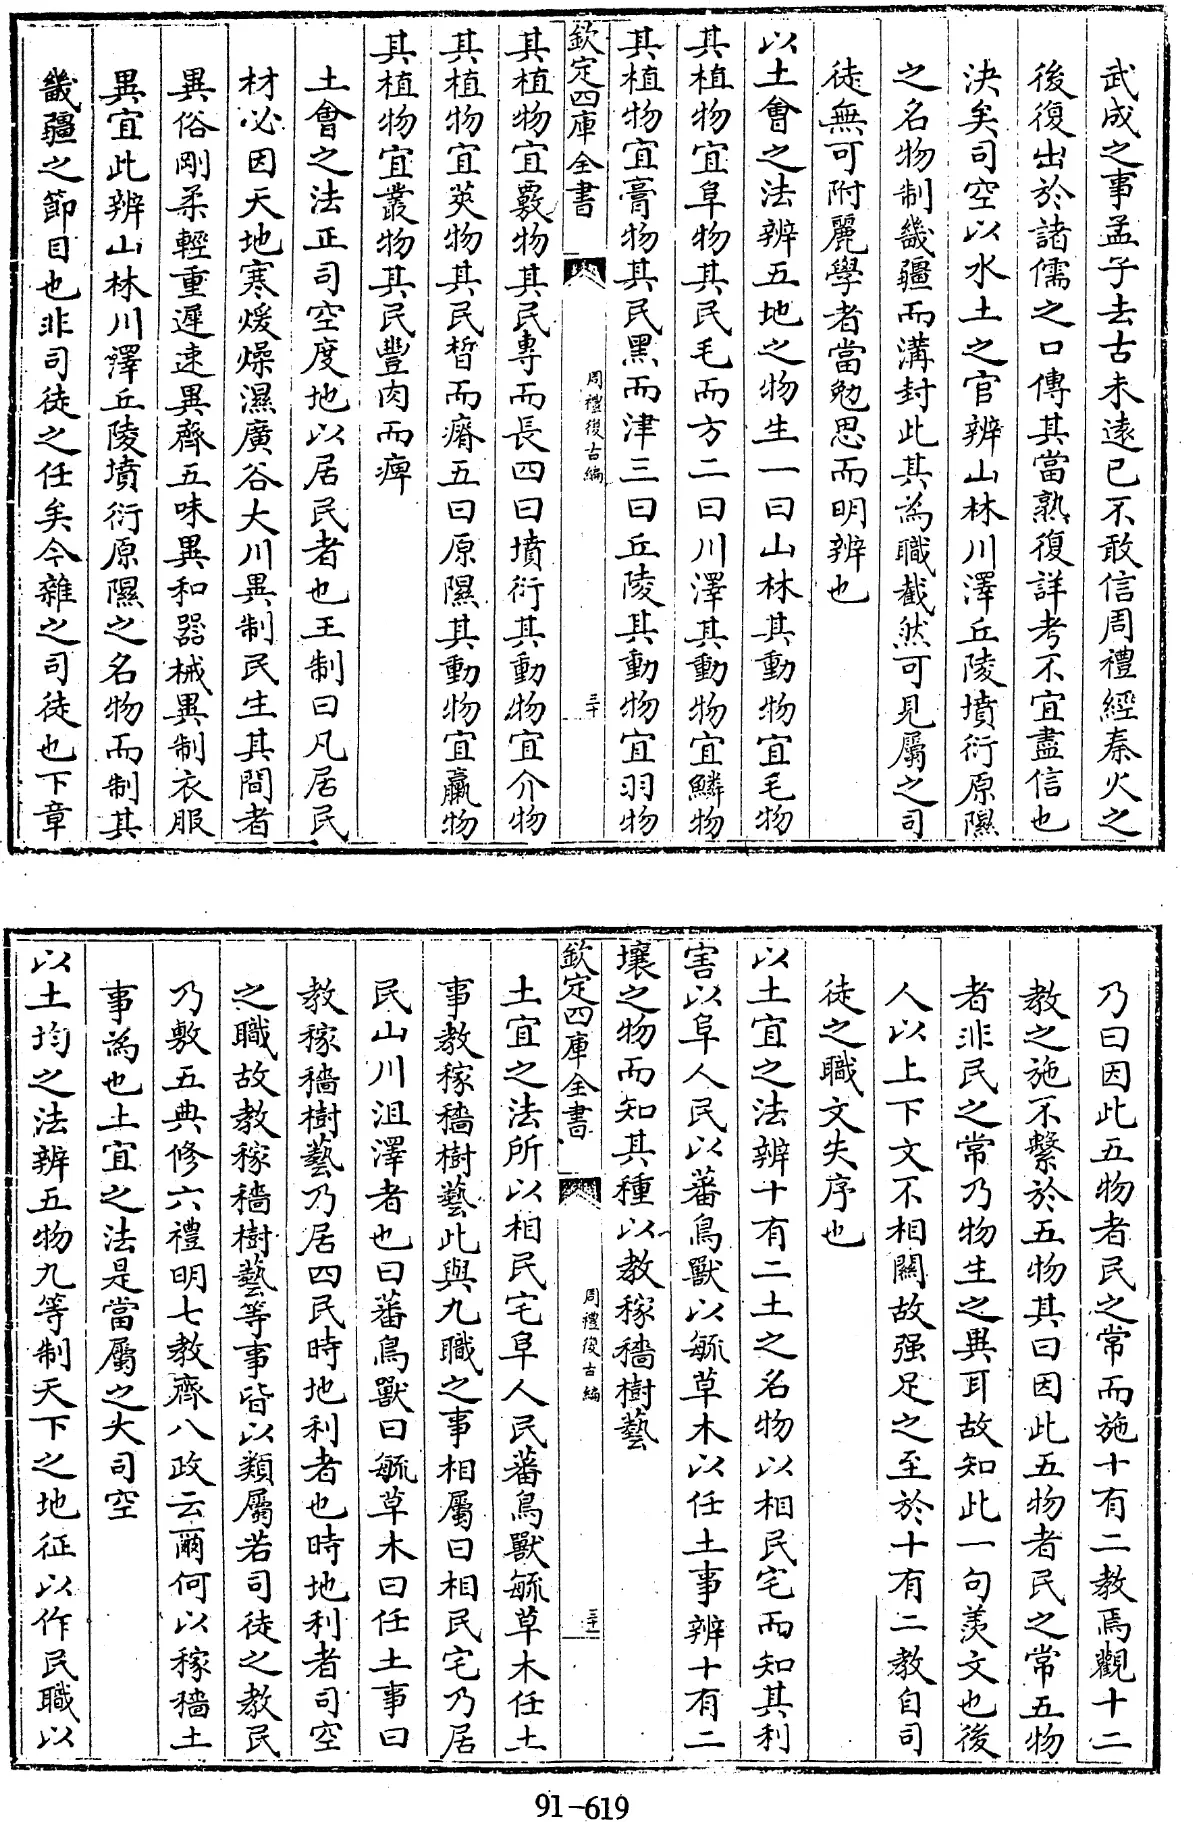 武成之事孟子去古未遠已不敢信周禮經秦火之
後復出於諸儒之口傳其當熟復詳考不宜盡信也
決矣司空以水土之官辨山林川澤丘陵墳衍原隰
之名物制畿疆而溝封此其為職截然可見屬之司
徒無可附麗學者當勉思而明辨也
以土會之法辨五地之物生一曰山林其動物宜毛物
其植物宜阜物其民毛而方二曰川澤其動物宜鱗物
其植物宜膏物其民黑而津三曰丘陵其動物宜羽物
欽定四庫全書
周禮復古編
三十
其植物宜覈物其民專而長四曰墳衍其動物宜介物
其植物宜莢物其民晳而瘠五曰原隰其動物宜臝物
其植物宜叢物其民豐肉而痺
土會之法正司空度地以居民者也王制曰凡居民
材必因天地寒煖燥濕廣谷大川異制民生其間者
異俗剛柔輕重遲速異齊五味異和器械異制衣服
異宜此辨山林川澤丘陵墳衍原隰之名物而制其
畿疆之節目也非司徒之任矣今雜之司徒也下章
乃曰因此五物者民之常而施十有二教焉觀十二
教之施不繫於五物其曰因此五物者民之常五物
者非民之常乃物生之異耳故知此一句羨文也後
人以上下文不相關故强足之至於十有二教自司
徒之職文失序也
以土宜之法辨十有二土之名物以相民宅而知其利
害以阜人民以蕃鳥獸以毓草木以任土事辨十有二
壤之物而知其種以教稼穡樹藝
欽定四庫全書
周禮復古編
三十一
土宜之法所以相民宅阜人民蕃鳥獸毓草木任土
事教稼穡樹藝此與九職之事相屬曰相民宅乃居
民山川沮澤者也曰蕃鳥獸曰毓草木曰任土事曰
教稼穡樹藝乃居四民時地利者也時地利者司空
之職故教稼穡樹藝等事皆以類屬若司徒之教民
乃敷五典修六禮明七教齊八政云爾何以稼穡土
事為也土宜之法是當屬之大司空
以土均之法辨五物九等制天下之地征以作民職以
91-619